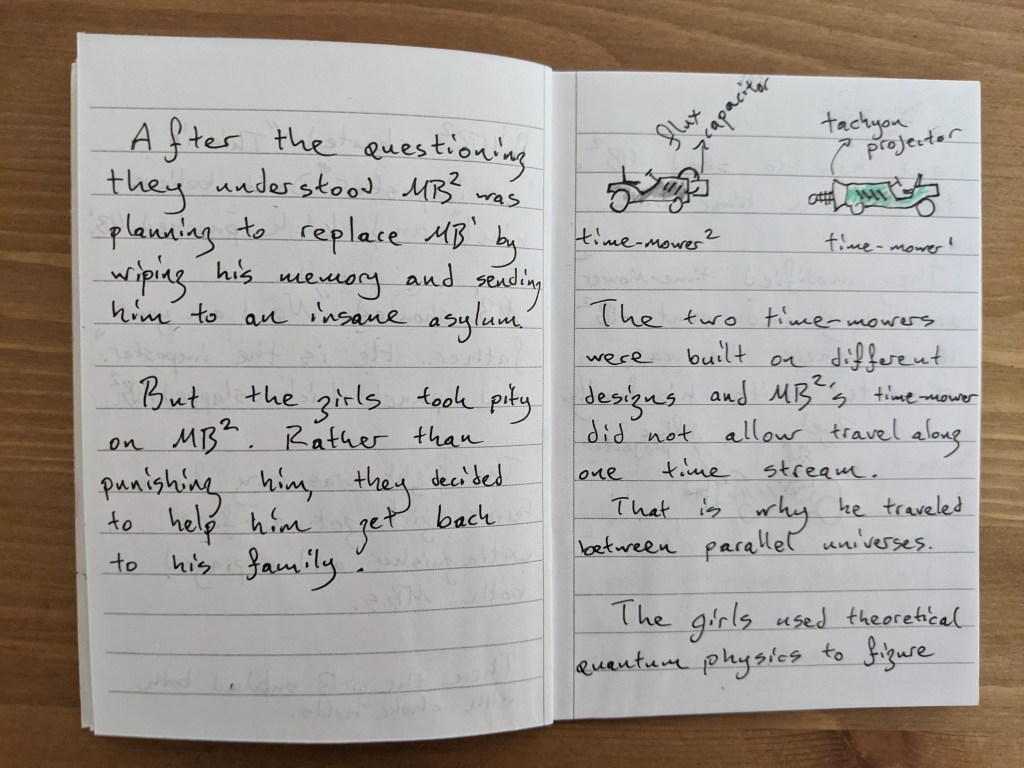 After the questioning
they understood MB² was
planning to replace MB¹ by
wiping his memory and sending
him to an insane asylum.
But the girls took pity
on MB². Rather than
punishing him, they decided
to help him get back
to his family.
flux
capacitor
tachyon
projector
time-mower²
time-mower¹
The two time-mowers
were built on different
designs and MB²'s time-mower
did not allow travel along
one time stream.
That is why he traveled
between parallel universes.
The girls used theoretical
quantum physics to figure